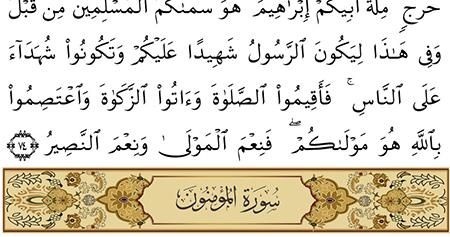 حَرَجٍ مِّلَّةَ أَبِيكُمْ إِبْرَٰهِيمَ هُوَ سَمَّىٰكُمُ ٱلْمُسْلِمِينَ مِن قَبْلُ
وَفِى هَٰذَا لِيَكُونَ ٱلرَّسُولُ شَهِيدًا عَلَيْكُمْ وَتَكُونُوا۟ شُهَدَآءَ
عَلَى ٱلنَّاسِ ۚ فَأَقِيمُوا۟ ٱلصَّلَوٰةَ وَءَاتُوا۟ ٱلزَّكَوٰةَ وَٱعْتَصِمُوا۟
بِٱللَّهِ هُوَ مَوْلَىٰكُمْ ۖ فَنِعْمَ ٱلْمَوْلَىٰ وَنِعْمَ ٱلنَّصِيرُ ﴿٧٤﴾
سُورَةُ المُؤْمِنُونَ